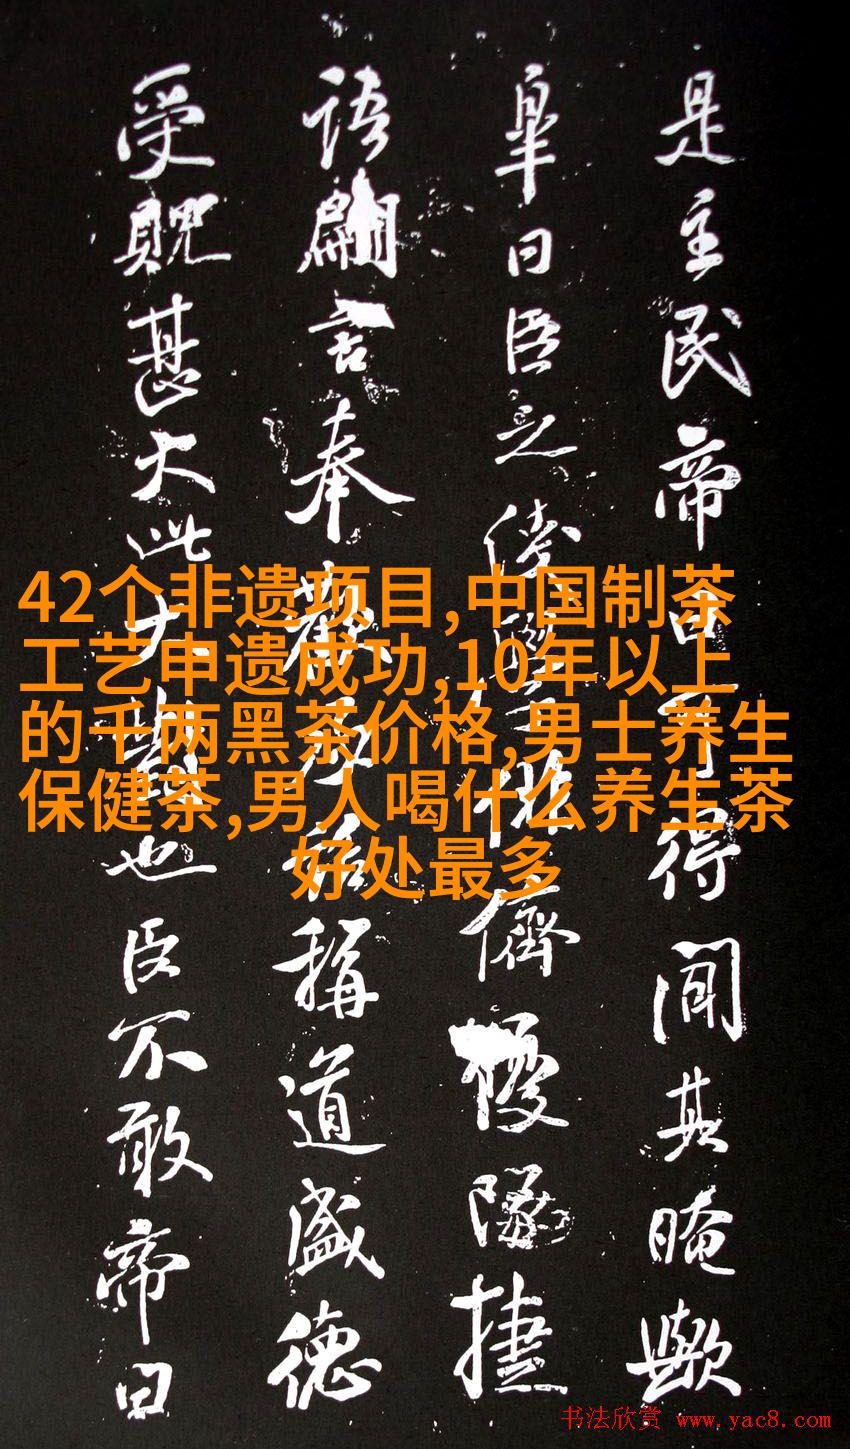 是主民帝曰可得聞其晻歟
皐曰臣之
儕優隊捷
語
言奉
稱道盛德
受貺甚大此大
也臣不敢帝曰
42个非遗项目,中国制茶
工艺申遗成功,10年以上
的千两黑茶价格,男士养生
保健茶,男人喝什么养生茶
好处最多
书法欣赏 www.yac8.com